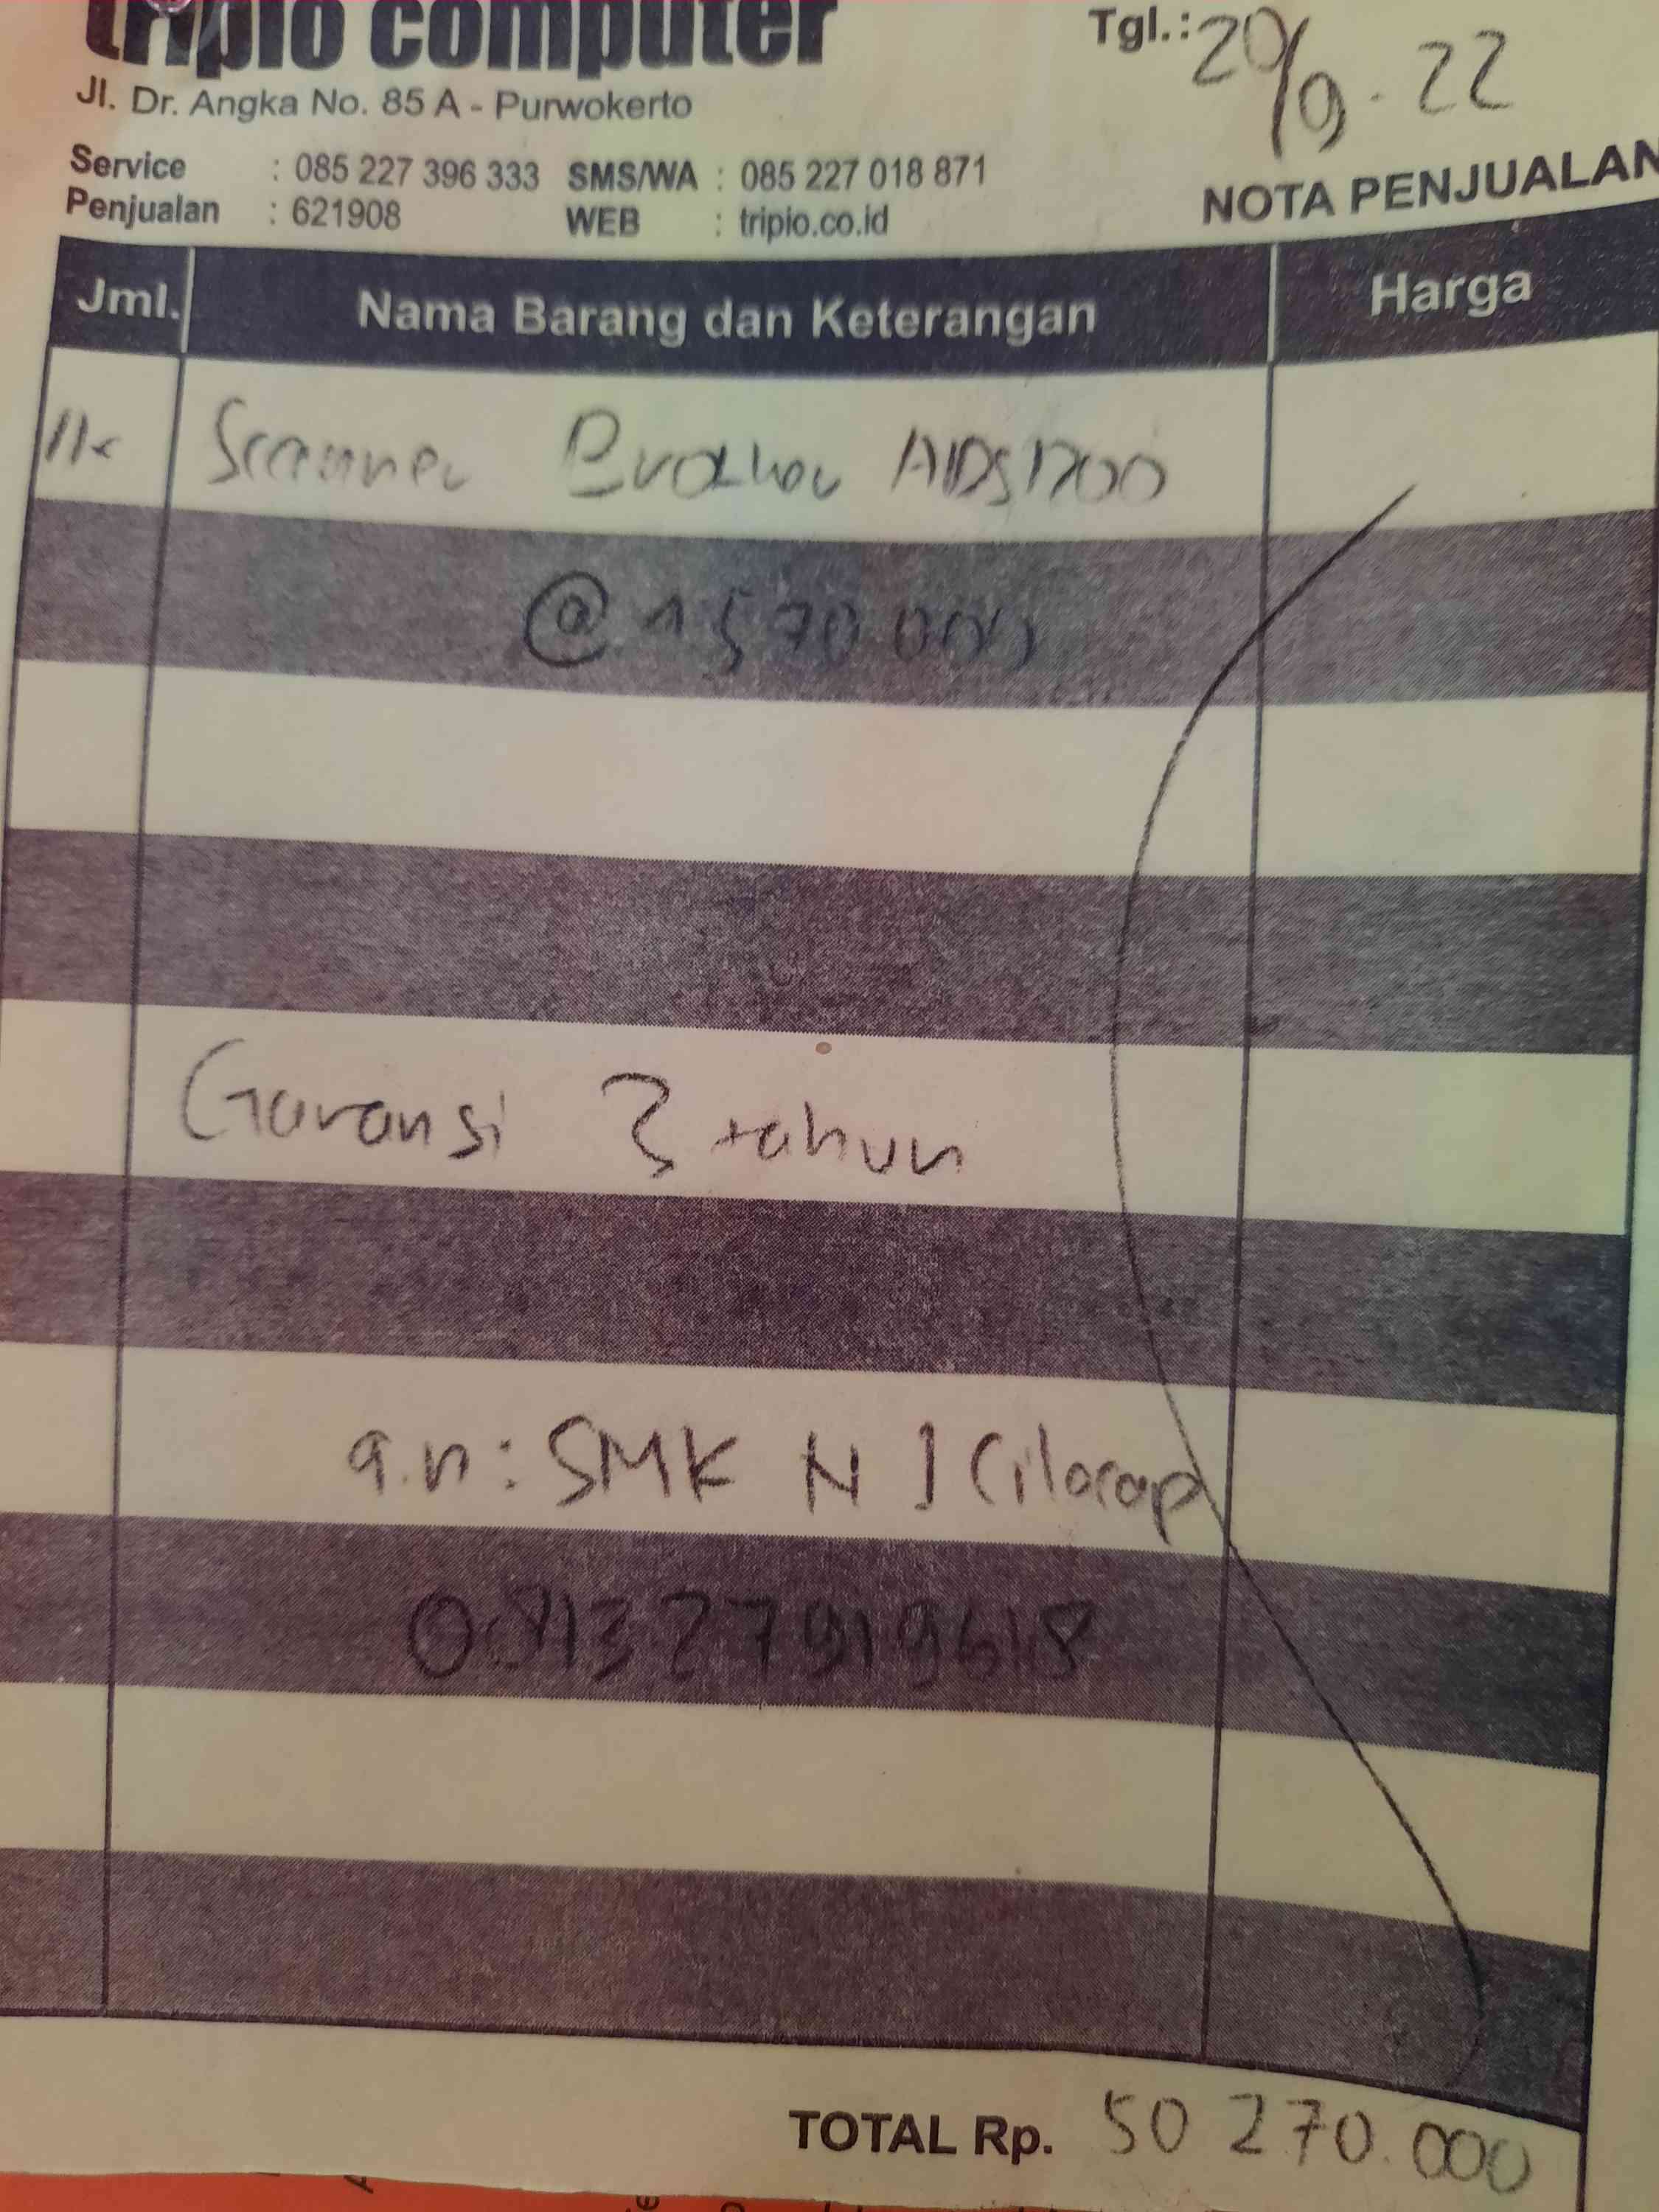 tripio computer
Tgl.: 20/9.22
Jl. Dr. Angka No. 85 A - Purwokerto
Service : 085 227 396 333 SMS/WA : 085 227 018 871
Penjualan : 621908 WEB : tripio.co.id
NOTA PENJUALAN
Jml. Nama Barang dan Keterangan Harga
11x Scanner Brother ADS1200
@ 4570 000
Garansi 3 tahun
a.n: SMK N 1 Cilacap
TOTAL Rp. 50 270.000